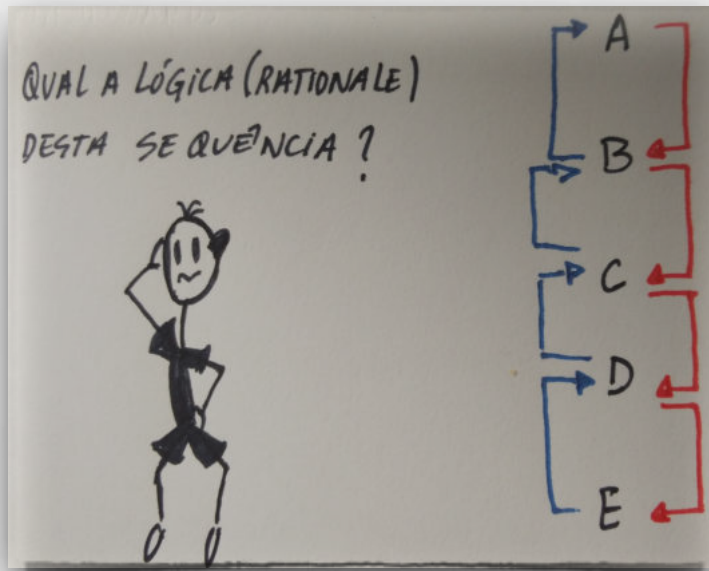 QUAL A LÓGICA (RATIONALE)
DESTA SEQUÊNCIA ?
A
B
C
D
E